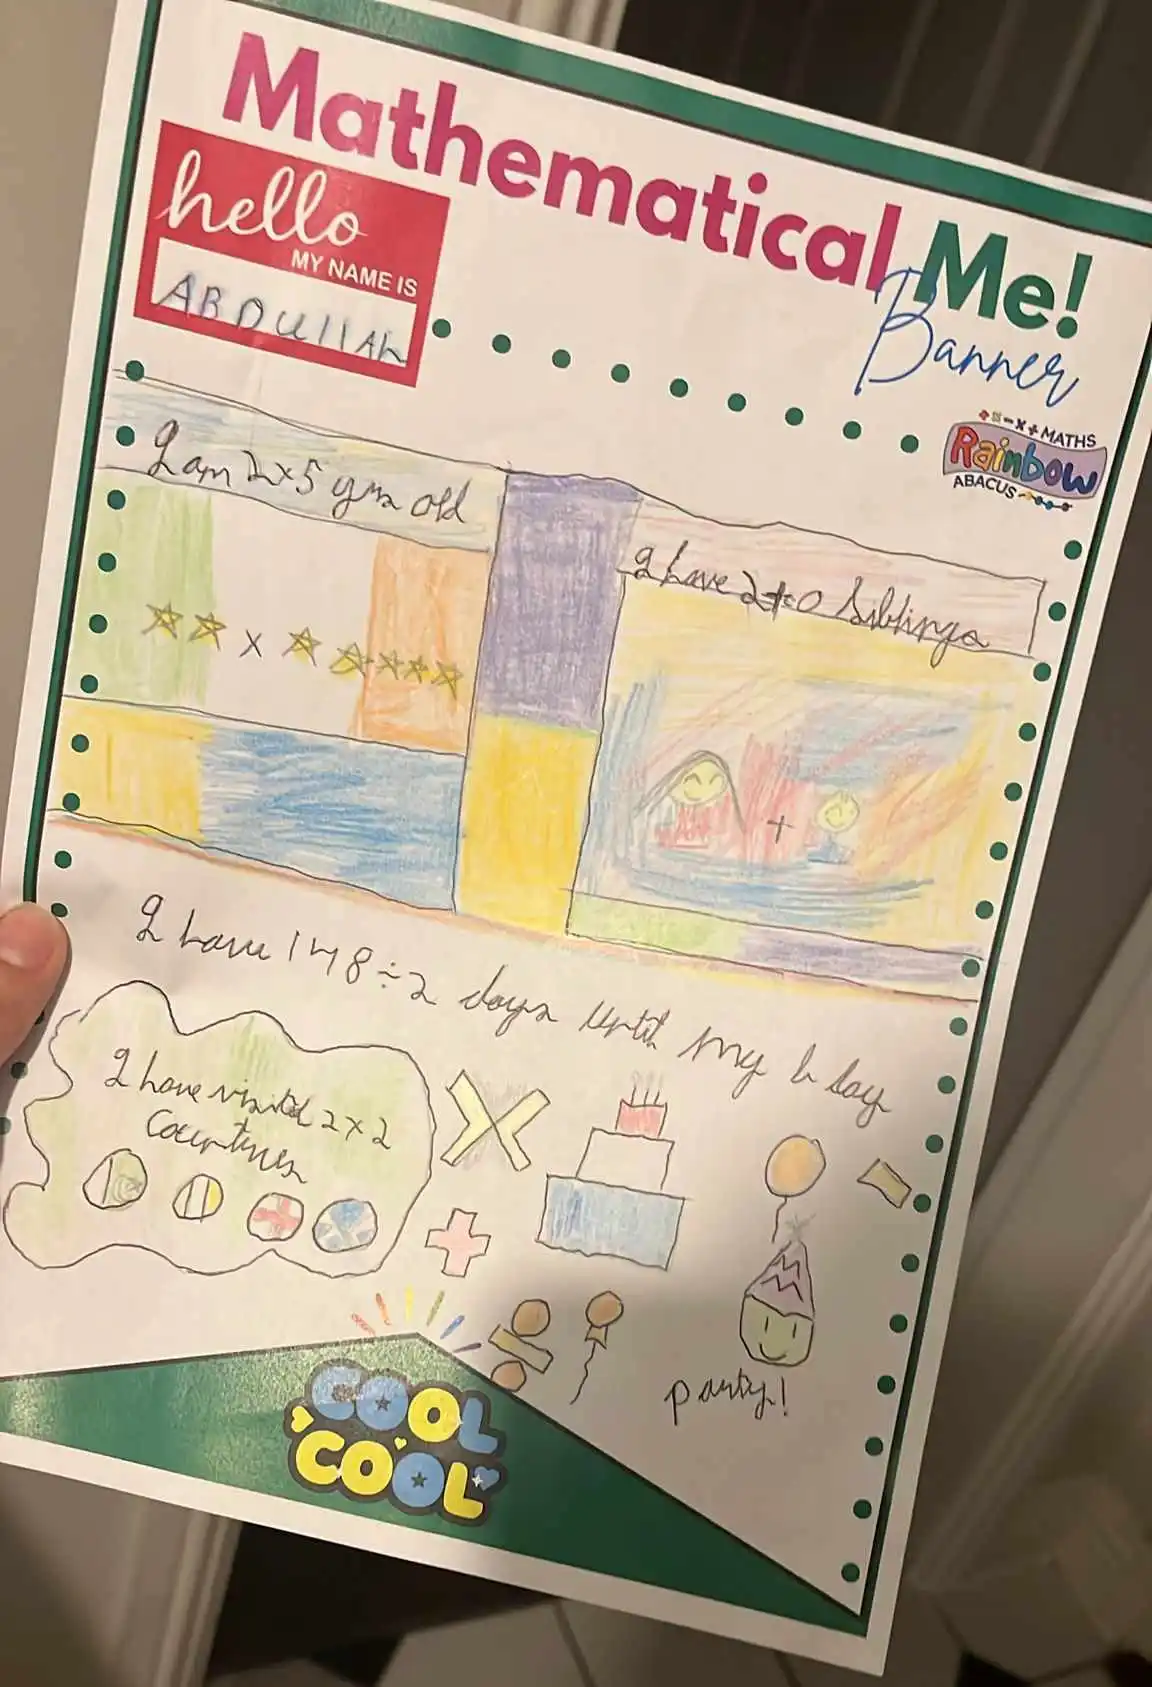 Mathematical Me!
Banner
hello
MY NAME IS
ABDUllAh
MATHS
Rainbow
ABACUS
I am 2x5 yrs old
I have 2+0 siblings
I have 148÷2 days until my b day
I have visited 2x2
Countries
party!
COOL
COOL